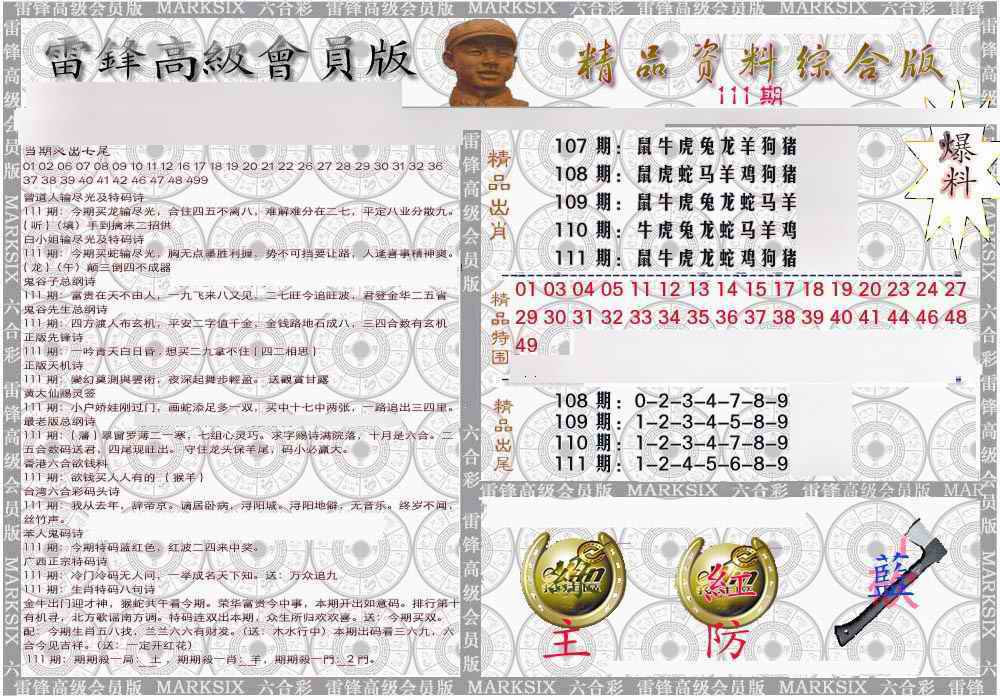 雷锋高级会员版 MARKSIX 六合彩 雷锋高级会员版 MARKSIX 六合彩 雷锋高级会员版 MARKSIX 六合彩 雷锋
雷鋒高級會員版
精品资料综合版
111 期
01 02 06 07 08 09 10 11 12 16 17 18 19 20 21 22 26 27 28 29 30 31 32 36
37 38 39 40 41 42 46 47 48 499
曾道人输尽光及特码诗
111 期：今期买龙输尽光，合住四五不离八，难解难分在二七，平定八业分散九。
{ 听 }（填）手到擒来二招供
白小姐输尽光及特码诗
111 期：今期买蛇输尽光，胸无点墨胜利握，势不可挡要让路，人逢喜事精神爽。
{ 龙 }（午）颠三倒四不成器
鬼谷子总纲诗
111 期：富贵在天不由人，一九飞来八又见，二七旺今追旺波，君登金华二五省
鬼谷先生总纲诗
111 期：四方渡人布玄机，平安二字值千金，金钱路地石成八，三四合数有玄机
正版先锋诗
111 期：一吟青天白日昏，想买二九拿不住 { 四二相思 }
正版天机诗
111 期：變幻莫測與雲術，夜深起舞步輕盈。送觀賞甘露
黄大仙赐灵签
111 期：小户娇娃刚过门，画蛇添足多一双，买中十七中两张，一路追出三四里。
最老版总纲诗
111 期：{ 藩 } 翠窗罗薄二一寒，七组心灵巧。求字赐诗满院落，十月是六合。二
五合数码送君，四尾现旺出。守住龙头保羊尾，码小必赢大。
香港六合欲钱料
111 期：欲钱买人人有的 { 猴羊 }
台湾六合彩码头诗
111 期：我从去年，辞帝京。谪居卧病，浔阳城。浔阳地僻，无音乐。终岁不闻，
丝竹声。
苯人鬼码诗
111 期：今期特码蓝红色，红波二四来中奖。
广西正宗特码诗
111 期：冷门冷码无人问，一举成名天下知。送：万众追九
111 期：生肖特码八句诗
金牛出门迎才神，猴蛇共午看今期。荣华富贵今中事，本期开出如意码。排行第十
有机寻，北方歌谣南方调。特码连双出本期，众生所归欢欢喜。送：今期买双。
配：今期生肖五八找，兰兰六六有财发。（送：木水行中）本期出码看三六九，六
合今见吉祥。（送：一定开红花）
111 期：期期殺一局：土，期期殺一肖：羊，期期殺一門：2 門。
精品出肖
107 期：鼠牛虎兔龙羊狗猪
108 期：鼠虎蛇马羊鸡狗猪
109 期：鼠牛虎兔龙蛇马羊
110 期：牛虎兔龙蛇马羊鸡
111 期：鼠牛虎龙蛇鸡狗猪
爆料
精品特围
01 03 04 05 11 12 13 14 15 17 18 19 20 23 24 27
29 30 31 32 33 34 35 36 37 38 39 40 41 44 46 48
49
精品出尾
108 期：0-2-3-4-7-8-9
109 期：1-2-3-4-5-8-9
110 期：1-2-3-4-7-8-9
111 期：1-2-4-5-6-8-9
雷锋高级会员版 MARKSIX 六合彩 雷锋高级会员版 MARK
紅
藍
主
防
雷锋高级会员版 MARKSIX 六合彩 雷锋高级会员版 MARKSIX 六合彩 雷锋高级会员版 MARKSIX 六合彩 雷锋